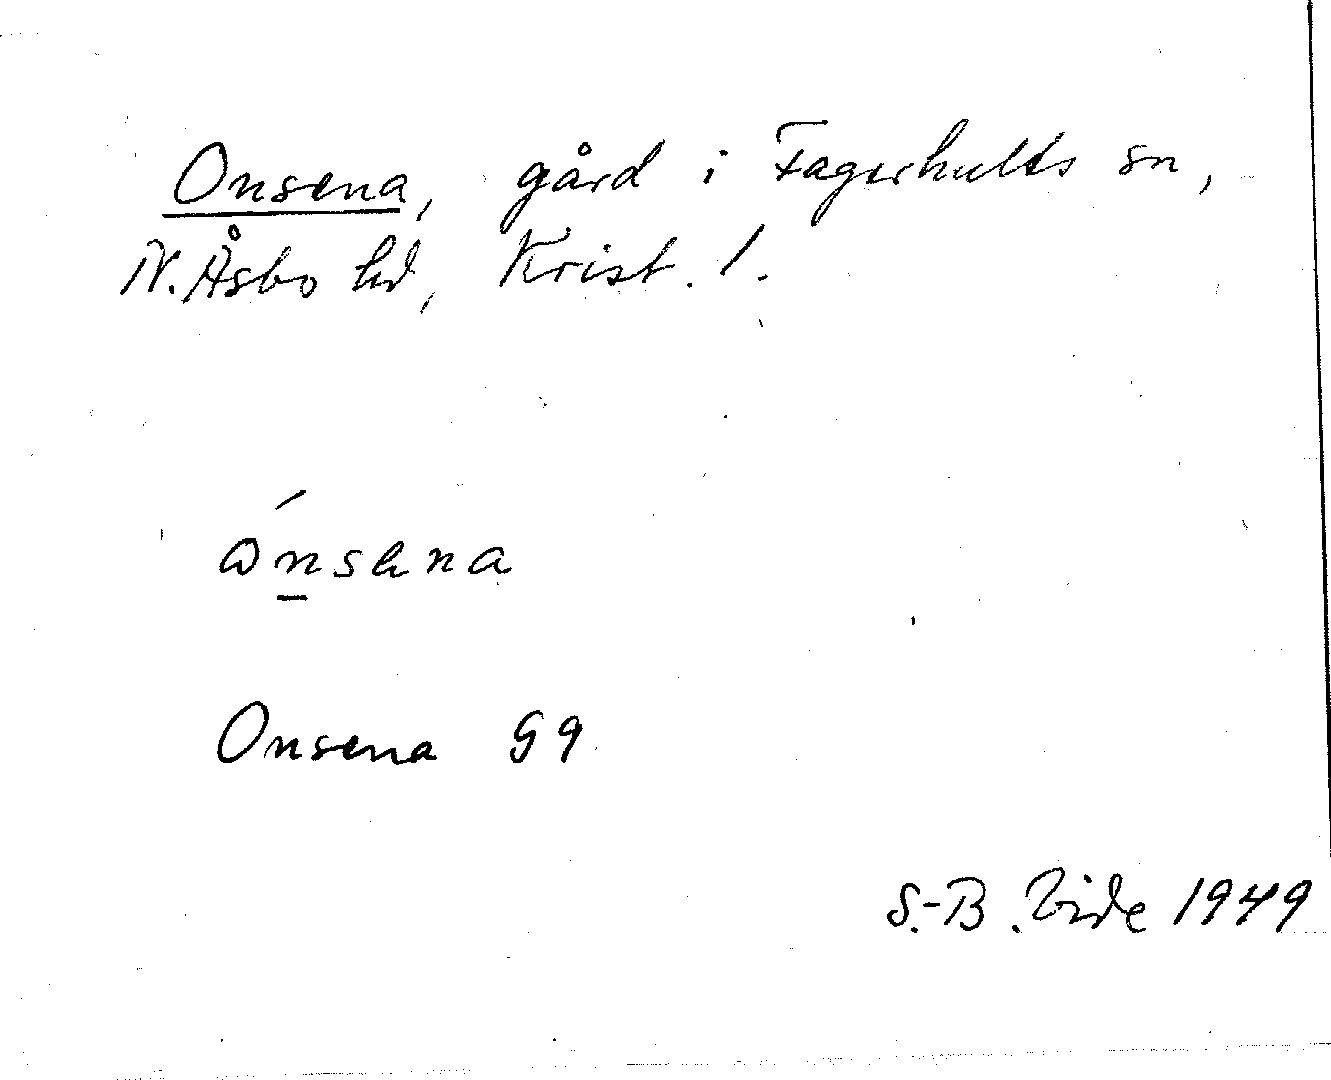 Onsena, gård i Fagerhults sn,
N. Åsbo hd, Krist. l.
ónsena
Onsena G9
S.-B. Vide 1949